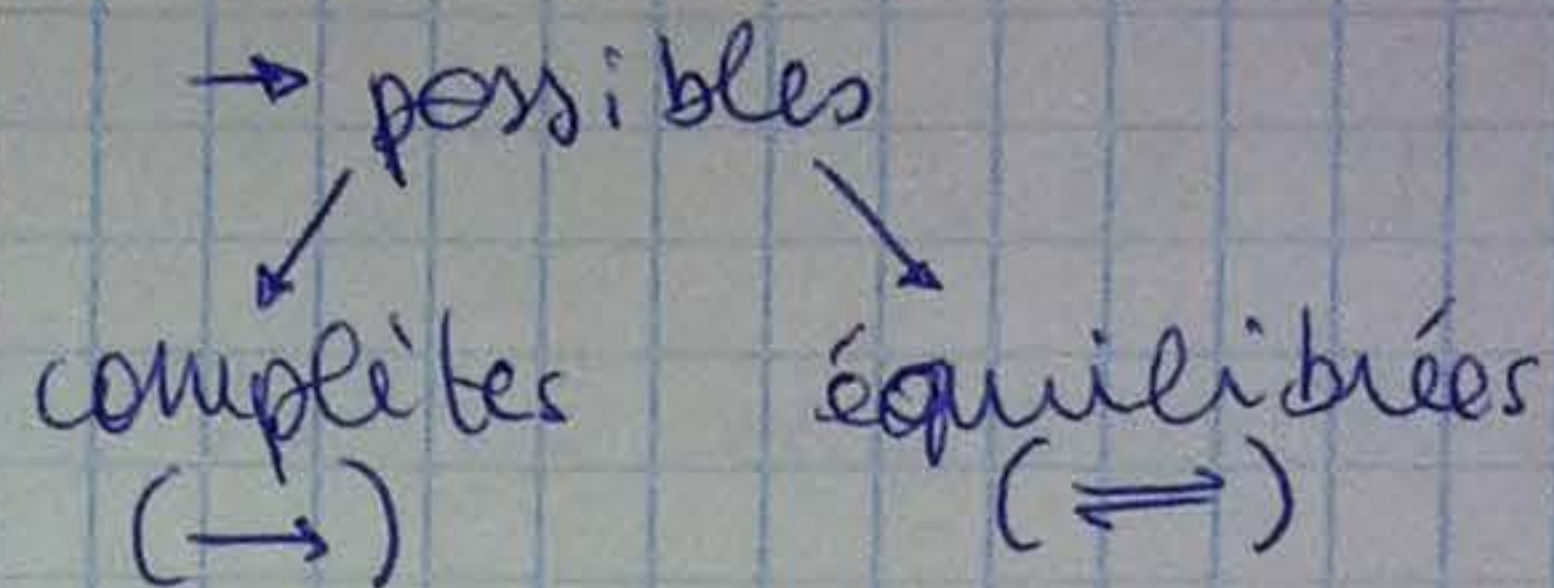 → possibles
complètes équilibrées
(→) (⇌)